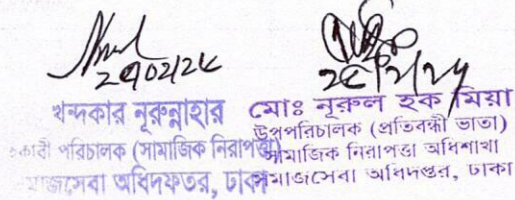 খন্দকার নূরুন্নাহার
পরিচালক (সামাজিক নিরাপত্তা)
অধিদফতর, ঢাকা
মোঃ নূরুল হক মিয়া
উপপরিচালক (প্রতিবন্ধী ভাতা)
সামাজিক নিরাপত্তা অধিশাখা
সমাজসেবা অধিদপ্তর, ঢাকা